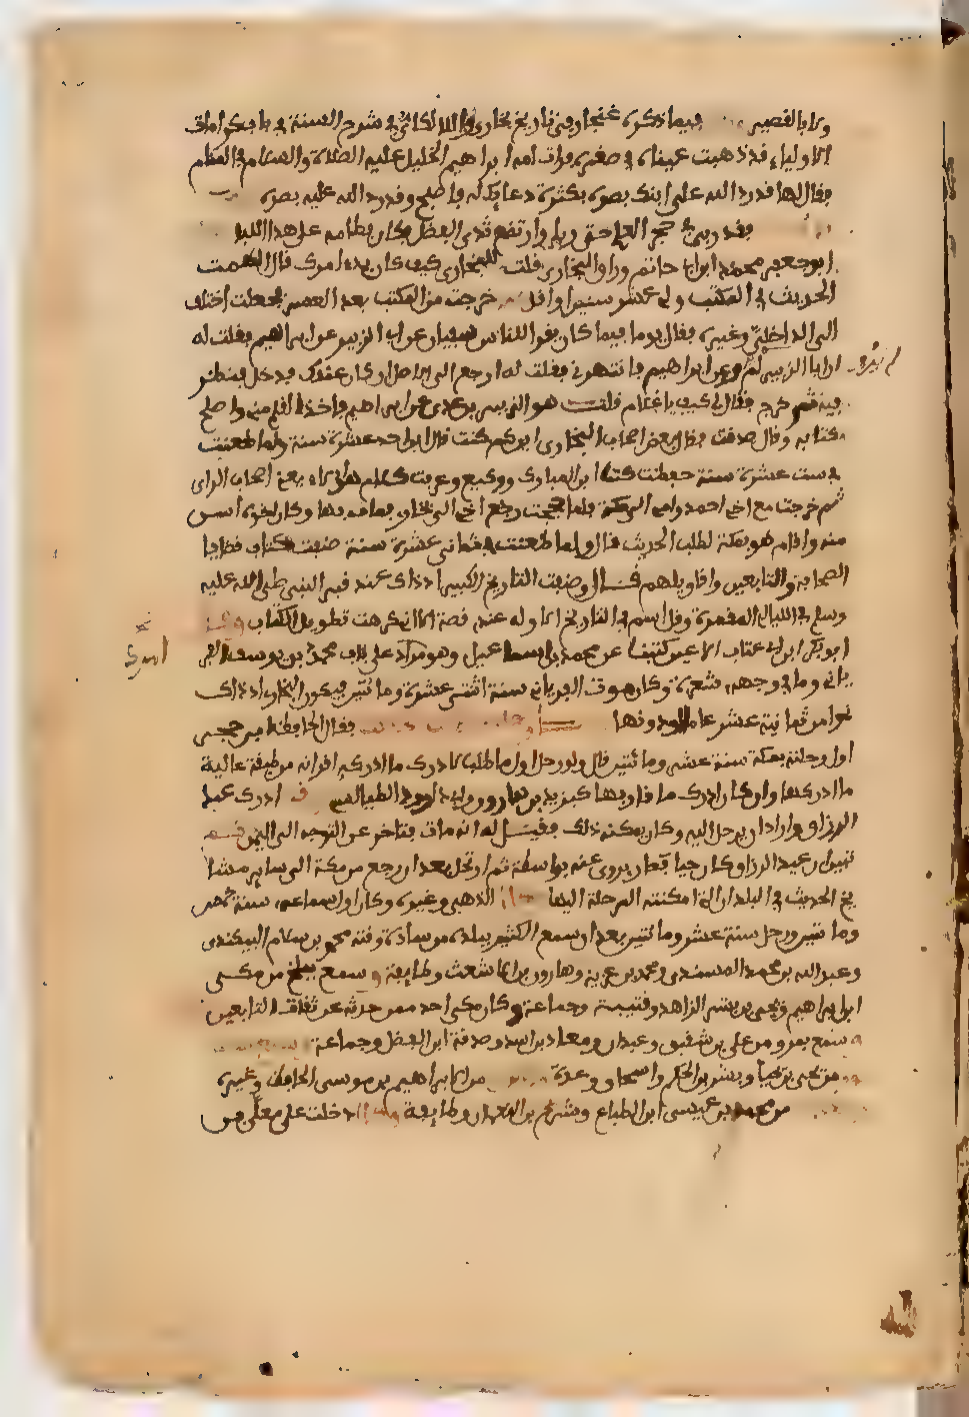 ولا بالقصير فيما ذكره غنجار في تاريخ بخارى واللالكائي في شرح السنة في باب كرامات
الاولياء قد ذهبت عيناه في صغره فرات امه ابراهيم الخليل عليه الصلاة والسلام في المنام
فقال لها قد رد الله على ابنك بصره بكثرة دعائك له فاصبح وقد رد الله عليه بصره
فقد ربي في حجر العلم حتى ربا وارتضع ثدي الفضل فكان فطامه على هذا اللبا
ابو جعفر محمد ابن ابي حاتم وراق البخاري قلت للبخاري كيف كان بدء امرك قال الهمت
الحديث في المكتب ولي عشر سنين او اقل خرجت من المكتب بعد العصر فجعلت اختلف
الى الداخلي وغيره فقال يوما فيما كان يقرا للناس سفيان عن ابي الزبير عن ابراهيم فقلت له
ان ابا الزبير لم يرو عن ابراهيم فانتهرني فقلت له ارجع الى الاصل ان كان عندك فدخل فنظر
فيه ثم خرج فقال لي كيف يا غلام قلت هو الزبير بن عدي عن ابراهيم فاخذ القلم مني واصلح
كتابه وقال صدقت فقال بعض اصحاب البخاري ابن كم كنت قال ابن احدى عشرة سنة ولما طعنت
في ست عشرة سنة حفظت كتب ابن المبارك ووكيع وعرفت كلام هؤلاء يعني اصحاب الراي
ثم خرجت مع اخي احمد وامي الى مكة فلما حججت رجع اخي الى بخارى فمات بها وكان اخوه اسن
منه واقام هو بمكة لطلب الحديث قال ولما طعنت في ثماني عشرة سنة صنفت كتاب قضايا
الصحابة والتابعين واقاويلهم قال وصنفت التاريخ الكبير اذ ذاك عند قبر النبي صلى الله عليه
وسلم في الليالي المقمرة وقل اسم في التاريخ الا وله عندي قصة الا اني كرهت تطويل الكتاب
ابو بكر ابن ابي عتاب الاعين كتبنا عن محمد بن اسماعيل وهو امرد على باب محمد بن يوسف الفر
يابي وما في وجهه شعرة وكان موت الفريابي سنة اثنتي عشرة ومائتين فيكون البخاري اذ ذاك
نحوا من ثمانية عشر عاما او دونها فقال الحافظ ابن حجر
اول رحلته بمكة سنة عشر ومائتين قال ولو رحل اول ما طلب لادرك ما ادركه اقرانه من طبقة عالية
ما ادركها وان كان ادرك ما قاربها كيزيد بن هارون وابي داود الطيالسي ادرك عبد
الرزاق واراد ان يرحل اليه وكان يمكنه ذلك فقيل له انه مات فتاخر عن التوجه الى اليمن
تبين ان عبد الرزاق كان حيا فصار يروي عنه بواسطة ثم ارتحل بعد ان رجع من مكة الى ساير مشا
يخ الحديث في البلدان التي امكنته الرحلة اليها الذهبي وغيره وكان اول سماعه سنة خمس
ومائتين ورحل سنة عشر ومائتين بعد ان سمع الكثير ببلده من سادة وقته محمد بن سلام البيكندي
وعبد الله بن محمد المسندي ومحمد بن عرعرة وهارون بن الاشعث وطايفة وسمع ببلخ من مكي
ابن ابراهيم ويحيى بن بشر الزاهد وقتيبة وجماعة وكان مكي احد ممن حدثه عن ثقات التابعين
وسمع بمرو من علي بن شقيق وعبدان ومعاذ بن اسد وصدقة ابن الفضل وجماعة
من يحيى بن يحيا وبشر بن الحكم واسحاق وعدة من ابراهيم بن موسى الحافظ وغيره
من محمد بن عيسى ابن الطباع وشريح بن النعمان وطايفة دخلت على معلى بن